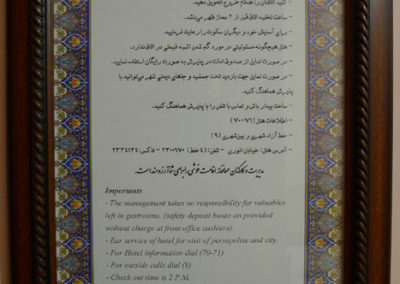 - کلید اتاقتان را هنگام خروج تحویل دهید.
- ساعت تخلیه اتاق قبل از ۲ بعد از ظهر می‌باشد.
- برای آسایش خود و دیگران سکوت را رعایت فرمایید.
- هتل هیچگونه مسئولیتی در مورد گم شدن اشیاء قیمتی در اتاق ندارد.
- در صورت تمایل از صندوق امانات در پذیرش به صورت رایگان استفاده نمایید.
- در صورت تمایل جهت بازدید تخت جمشید و جاهای دیدنی شهر می‌توانید با
پذیرش هماهنگ کنید.
- ساعت بیدار باش و تماس با تلفن را با پذیرش هماهنگ کنید.
- اطلاعات هتل (۷۱-۷۰)
- خط آزاد شهری و بین‌شهری (۹)
- آدرس هتل: خیابان انوری - تلفن: (۴ خط) ۲۳۰۰۱۷۰ - فاکس: ۲۳۳۴۱۳۴
مدیریت و کارکنان هتل اقامت خوشی را برای شما آرزومند است.
Imporiants
- The management takes no responsibility for valuables
left in gastrooms. (safety deposit boxes an provided
without charge at front office cashiers).
- Ear service of hotel for visit of persepolise and city.
- For Hotel information dial (70-71)
- For outside calls dial (9)
- Check out time is 2 P.M.